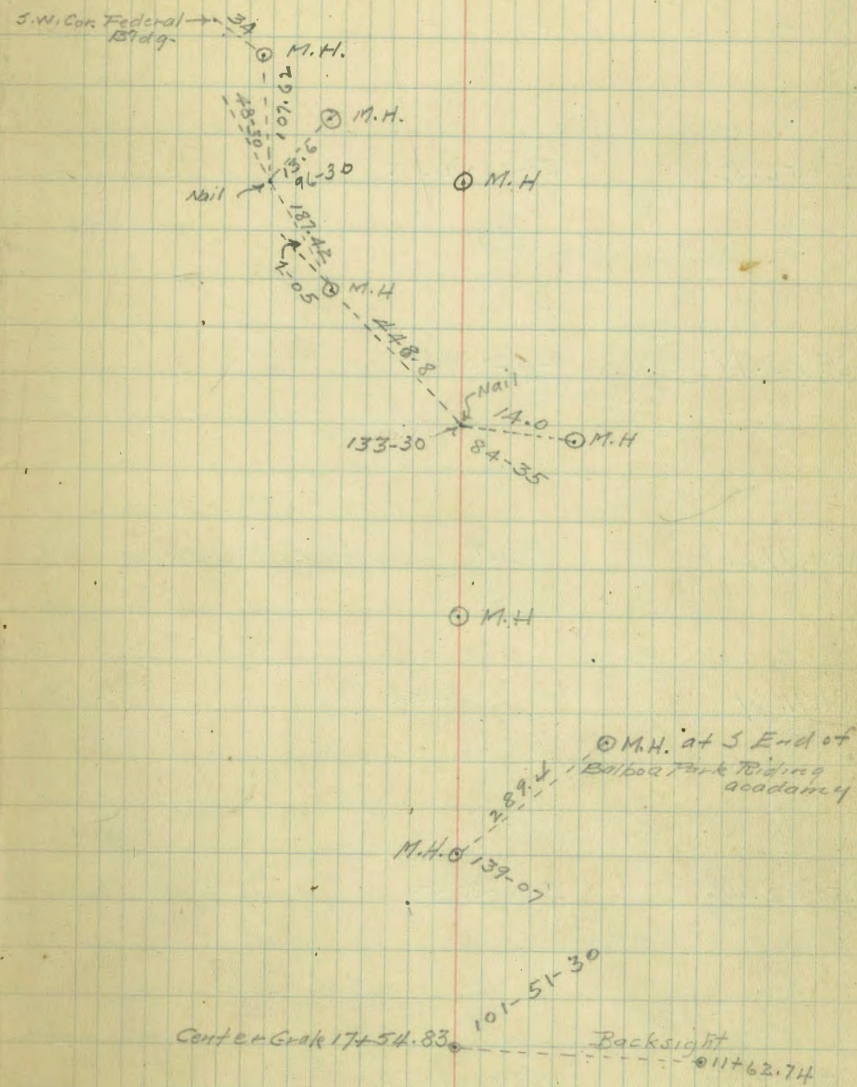 S.W. Cor. Federal
Bldg.
34
M.H.
107.62
48-30
M.H.
13.6
96-30
Nail
M.H
187.42
2-05
M.H
448.8
Nail
14.0
133-30
M.H
84-35
M.H
M.H. at S End of
Balboa Park Riding
acadamy
289.1
M.H.
139-07
101-51-30
Center Grade 17+54.83
Backsight
11+62.74